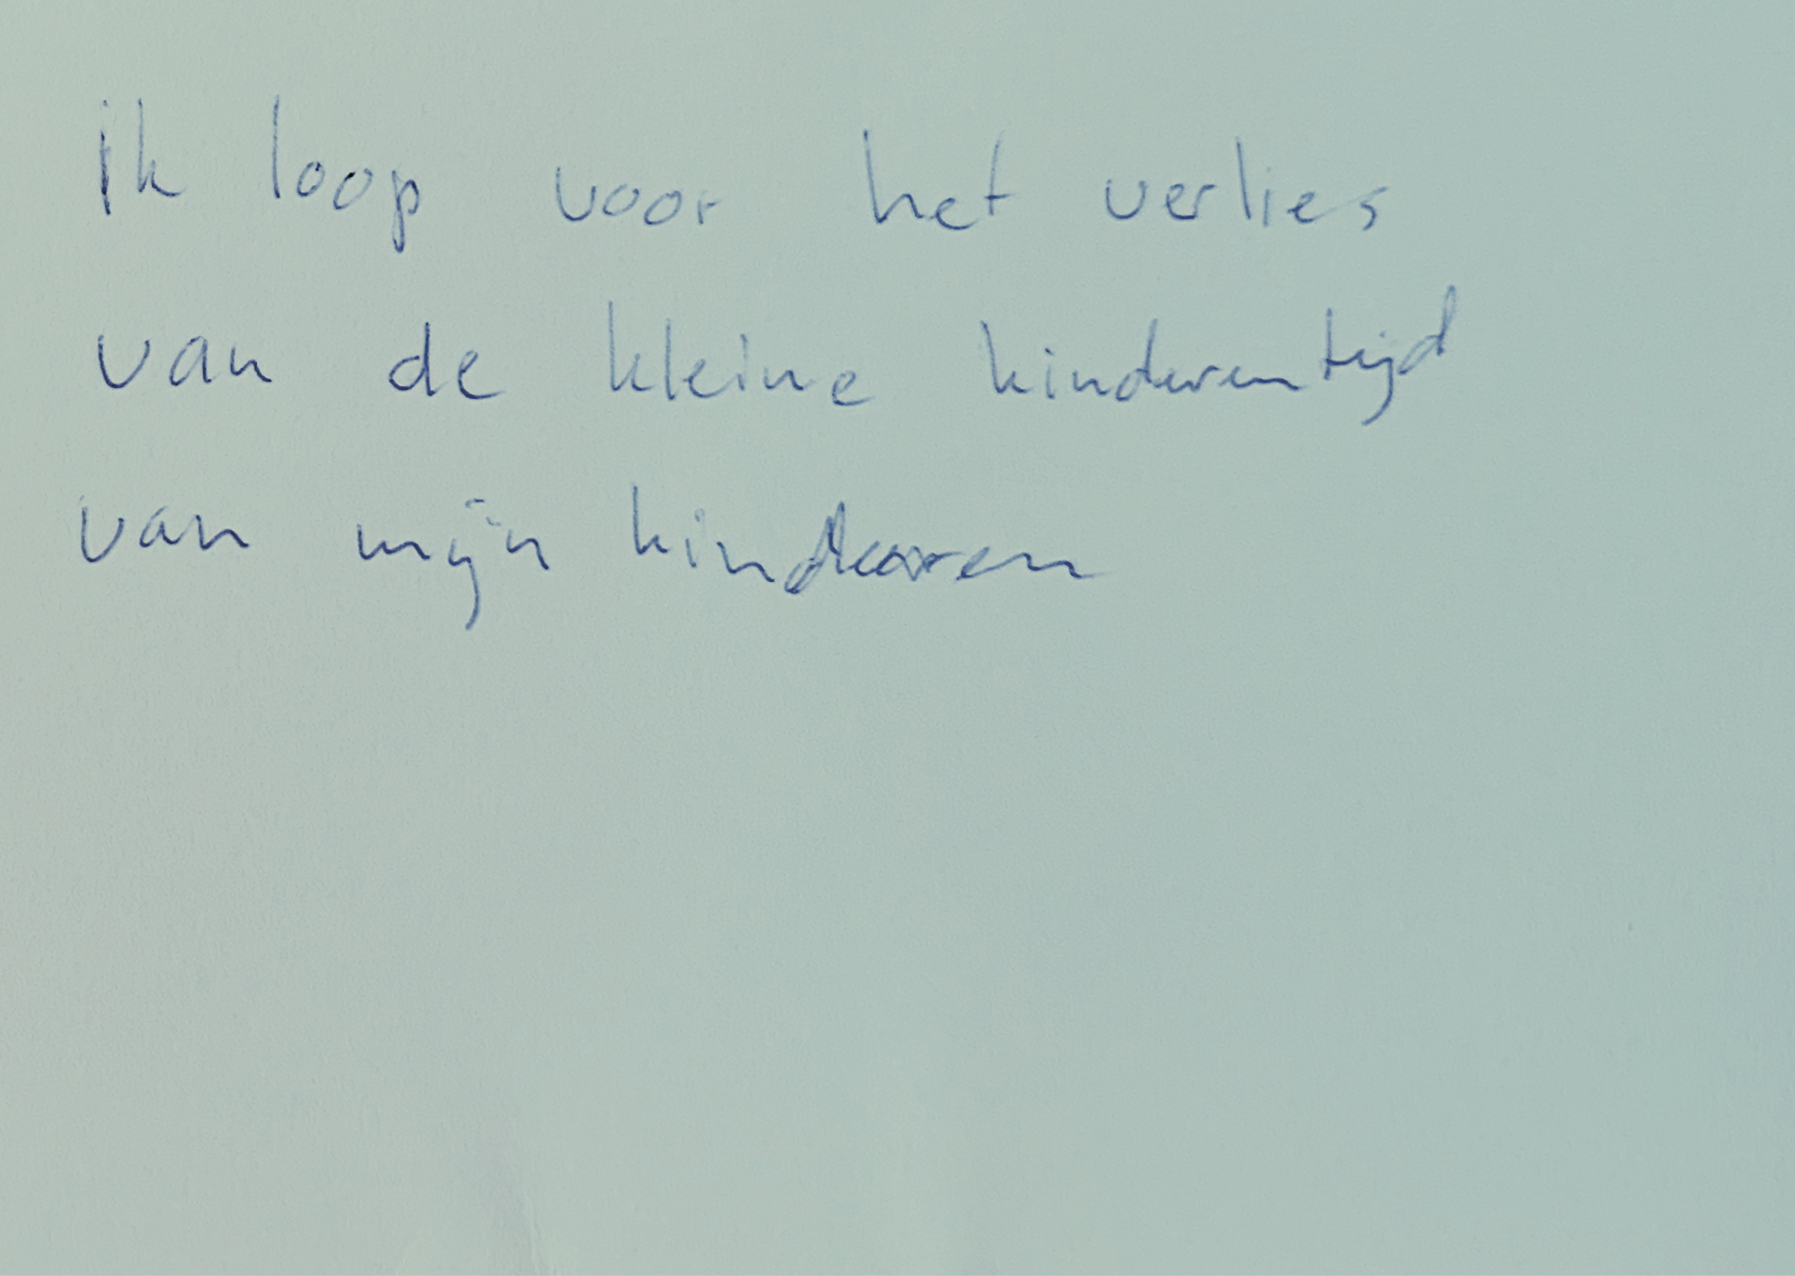 ik loop voor het verlies
van de kleine kinderentijd
van mijn kinderen